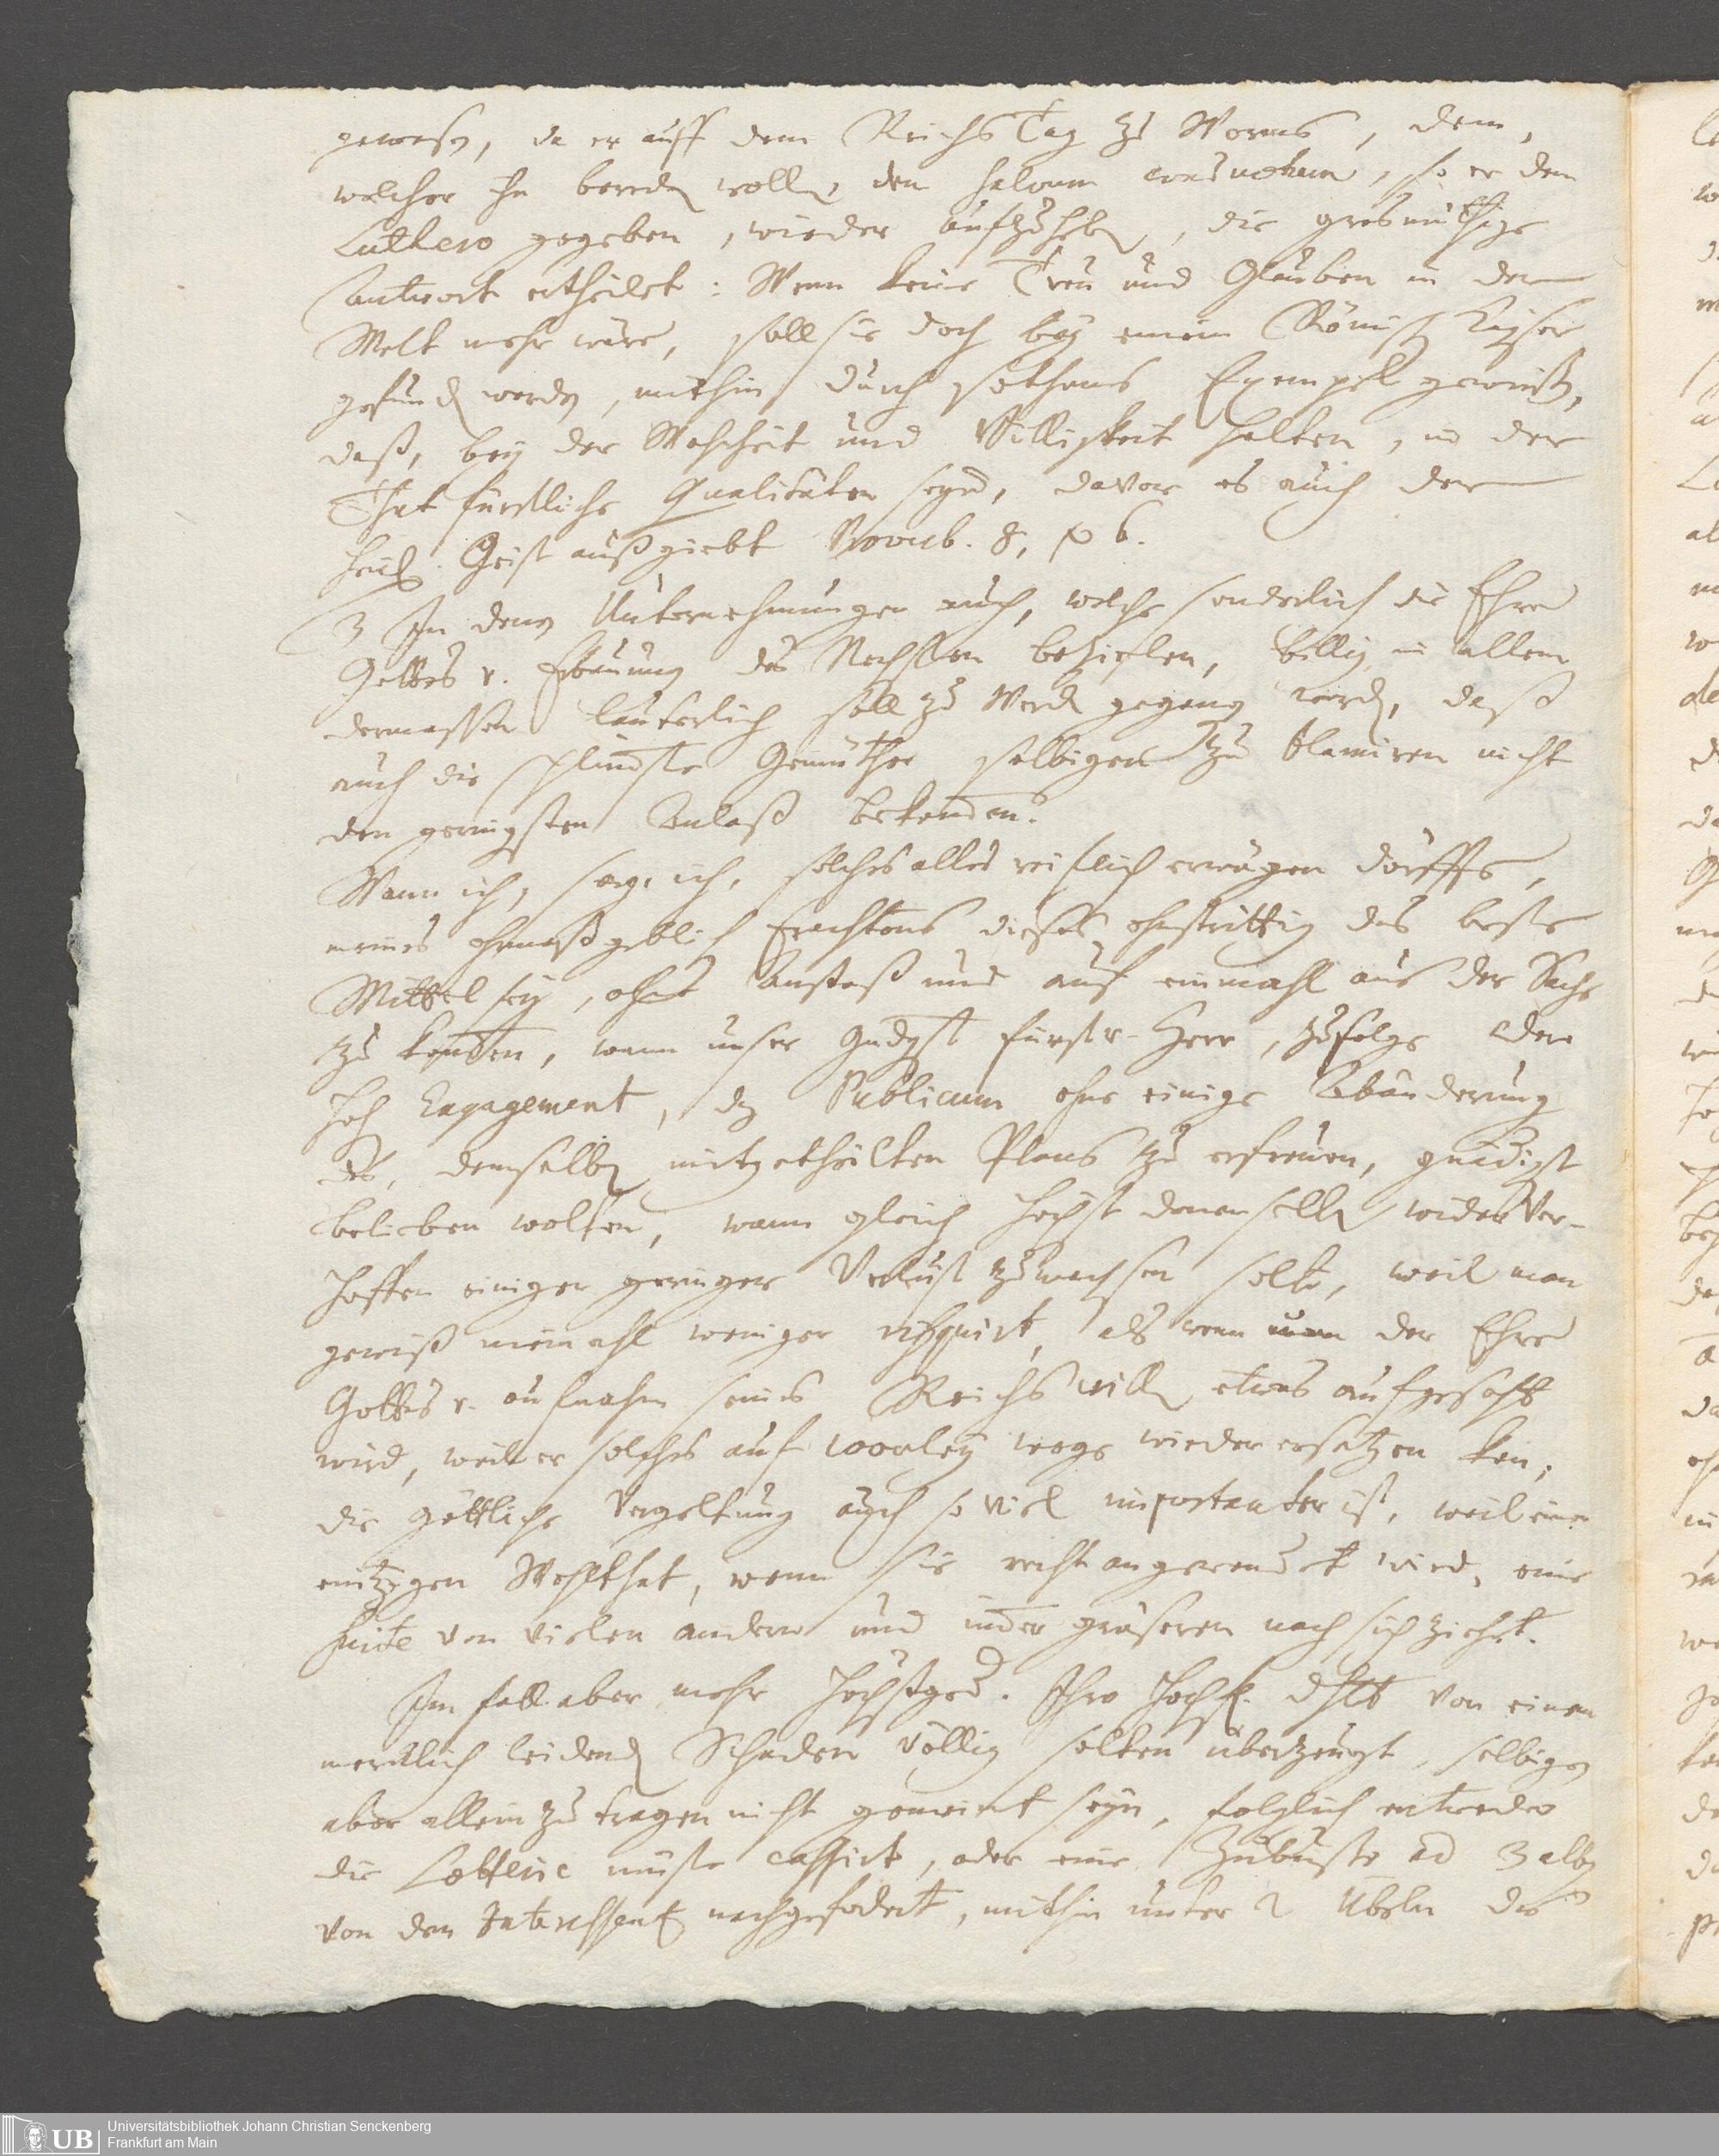 gewesen, da er auff dem Reichs Tag zu Worms, dem,
welcher ihn bereden wollen, den salvum conductum, so er dem
Luthero gegeben, wieder aufzuheben, die grosmüthige
Antwort ertheilet: Wenn keine Treu und Glauben in der
Welt mehr wäre, soll sie doch bey einem Römisch Kayser
gefunden werden, mithin durch sothanes Exempel gewiesen,
daß, bey der Wahrheit und Billigkeit halten, in der
That fürstliche Qualitäten seyen, davor es auch der
heil. Geist außgiebt Proverb. 8, v 6.
3 In denen Unternehmungen auch, welche sonderlich die Ehre
Gottes u. Erbauung des Nechsten beziehlen, billig in allem
dermassen lauterlich soll zu Werck gegangen werden, daß
auch die schlimste Gemüther selbigen zu blamiren nicht
den geringsten Anlaß bekommen.
Wann ich, sag ich, solches alles reiflich erwägen dörffte,
meines ohnmaßgeblich Erachtens dieses ohnstrittig das beste
Mittel sey, ohne Anstoß und auf einmahl aus der Sache
zu kommen, wann unser Gndgst Fürst u. Herr, zufolge dero
hoh Engagement, dz Publicum ohne einige Abänderung
des, demselben mitgetheilten Plans zu erfreuen, gnädigst
belieben wolten, wann gleich höchst denenselben wider Ver-
hoffen einiger geringer Verlust zuwachsen solte, weil man
gewiß niemahl weniger risquirt, als wenn man der Ehre
Gottes u. aufnahm seines Reichs willen etwas aufgesetzt
wird, weil er solches auf 1000erley wege wieder ersetzen kan;
die göttliche Vergeltung auch so viel importanter ist, weil eine
eintzigen Wohlthat, wenn sie recht angewendet wird, eine
suite von vielen andern und immer gröseren nach sich ziehet.
Im fall aber mehr höchstged. Ihro Hochf. Dhlt von einem
mercklich leidenden Schaden völlig solten überzeugt, selbigen
aber allein zu tragen nicht gemeint seyn, folglich entweder
die Lotterie müste cassirt, oder eine Zubuße ad 3 alb
von den Interessent nachgefodert, mithin unter 2 Übeln das
Universitätsbibliothek Johann Christian Senckenberg
Frankfurt am Main
UB